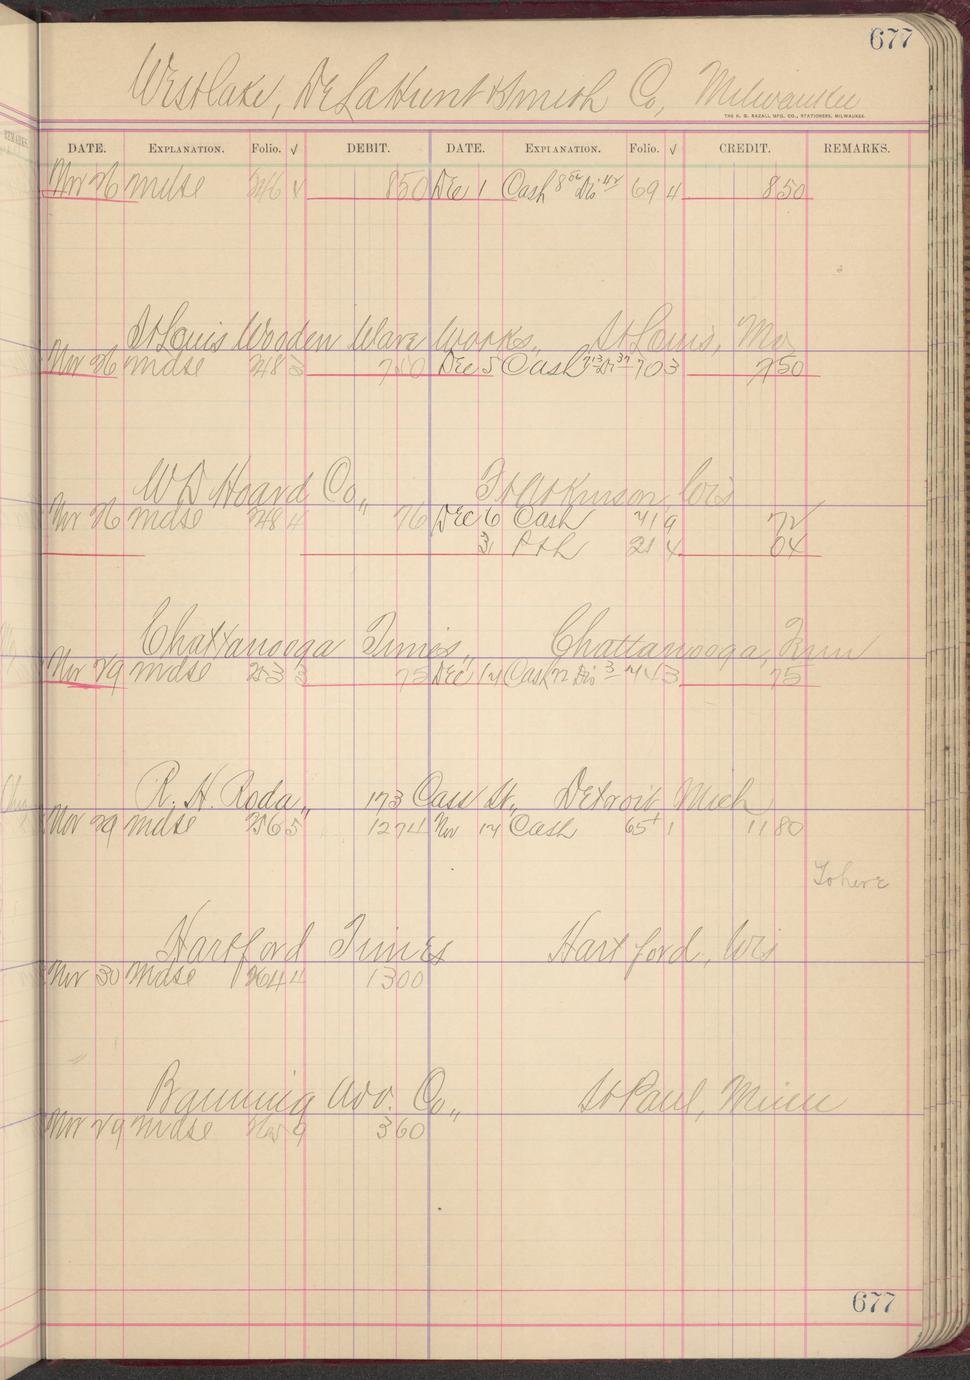 677
Westlake, DeLaHunt & Smith Co, Milwaukee
THE H. G. RAZALL MFG. CO., STATIONERS, MILWAUKEE.
DATE. EXPLANATION. Folio. √ DEBIT. DATE. EXPLANATION. Folio. √ CREDIT. REMARKS.
Nov 26 mdse 246 4 850 Dec 1 Cash Dis 69 4 850
St Louis Wooden Ware Works, St Louis, Mo
Nov 26 mdse 248 3 750 Dec 5 Cash 7 13 Dis 37 703 750
W D Hoard Co,, Ft Atkinson Wis
Nov 26 mdse 248 4 76 Dec 6 Cash 719 72
31 P&L 21 4 04
Chattanooga Times,, Chattanooga, Tenn
Nov 29 mdse 253 3 75 Dec 14 Cash 72 Dis 3 743 75
R. H. Roda,, 173 Cass St,, Detroit Mich
Nov 29 mdse 256 5 1274 Nov 14 Cash 65 1 1180
To here
Hartford Times Hartford, Wis
Nov 30 mdse 264 4 1300
Banning Adv. Co,, St Paul, Minn
Nov 29 mdse 9 360
677